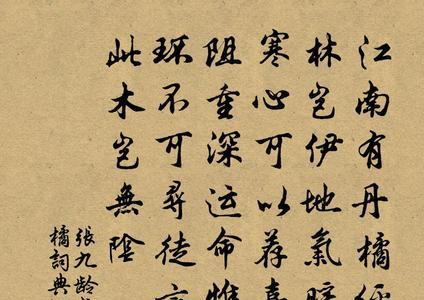 江南有丹橘
林岂伊地氣
寒心可以荐
阻重深运命
环不可尋徒言
此木岂無陰
张九龄
橘詞典